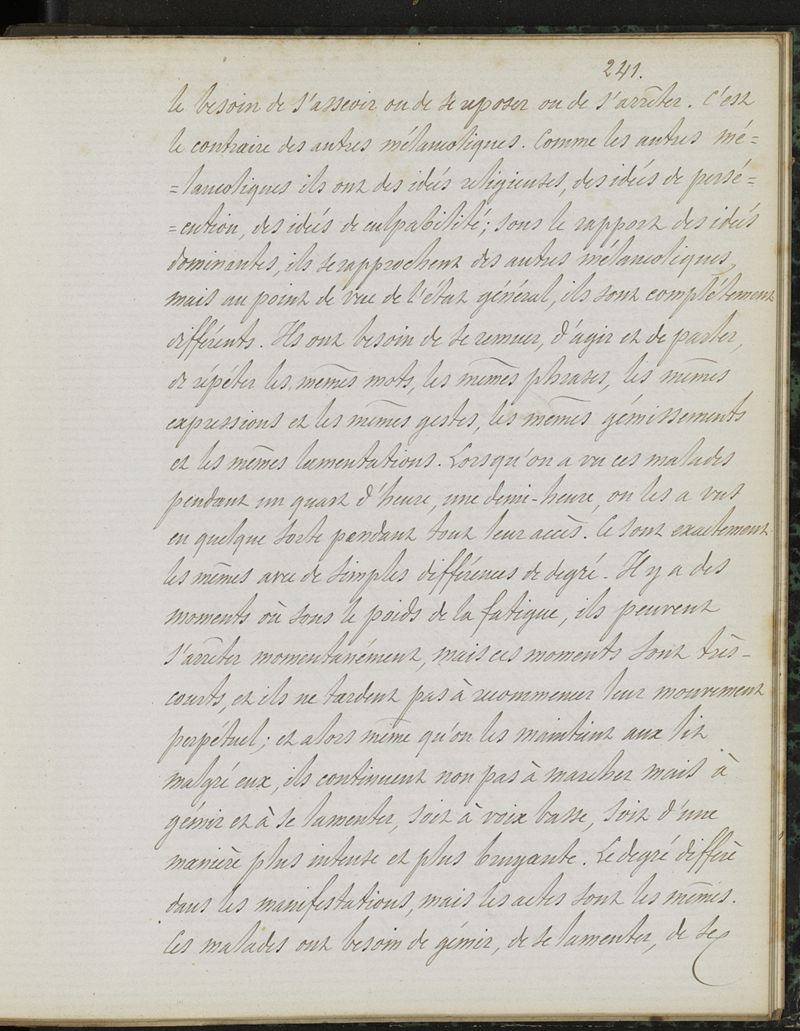 241.
le besoin de s'asseoir ou de se reposer ou de s'arrêter. C'est
le contraire des autres mélancoliques. Comme les autres mé=
=lancoliques ils ont des idées religieuses, des idées de persé=
=cution, des idées de culpabilité; sous le rapport des idées
dominantes, ils se rapprochent des autres mélancoliques,
mais au point de vue de l'état général, ils sont complétement
différents. Ils ont besoin de se remuer, d'agir et de parler,
de répéter les mêmes mots, les mêmes phrases, les mêmes
expressions et les mêmes gestes, les mêmes gémissements
et les mêmes lamentations. Lorsqu'on a vu ces malades
pendant un quart d'heure, une demi-heure, on les a vus
en quelque sorte pendant tout leur accès. Ce sont exactement
les mêmes avec de simples différences de degré. Il y a des
moments où sous le poids de la fatigue, ils peuvent
s'arrêter momentanément, mais ces moments sont très-
courts, et ils ne tardent pas à recommencer leur mouvement
perpétuel; et alors même qu'on les maintient aux lit
malgré eux, ils continuent non pas à marcher mais à
gémir et à se lamenter, soit à voix basse, soit d'une
manière plus intense et plus bruyante. Le degré diffère
dans les manifestations, mais les actes sont les mêmes.
Ces malades ont besoin de gémir, de se lamenter, de se